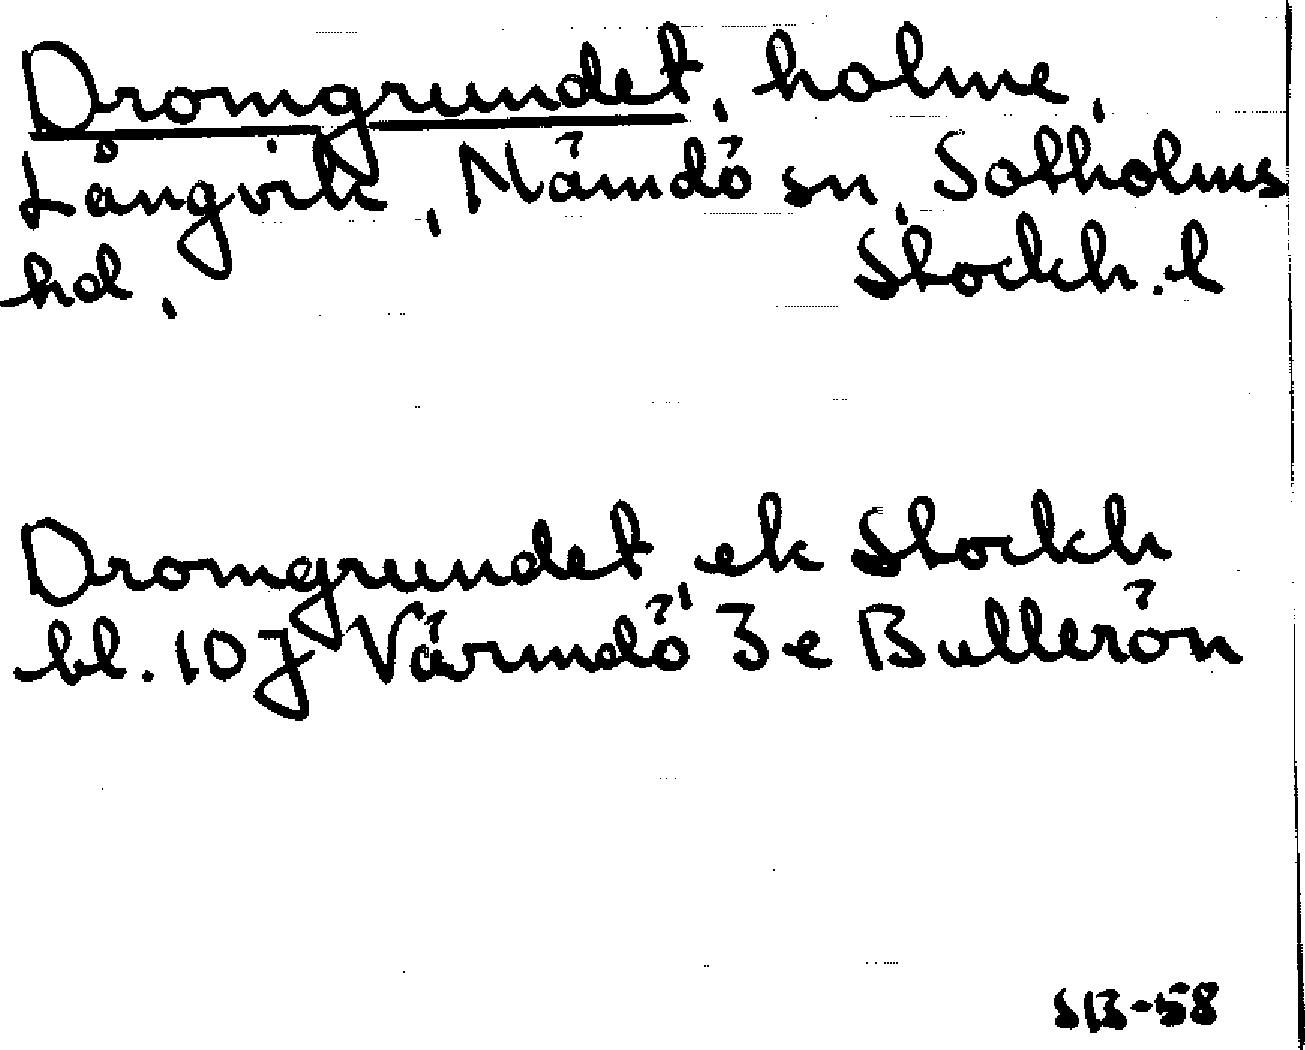 Dromgrundet, holme,
Långvik, Nämdö sn, Sotholms
hd, Stockh. l
Dromgrundet, ek Stockh
bl. 107 Värmdö 3e Bullerön
SB-58